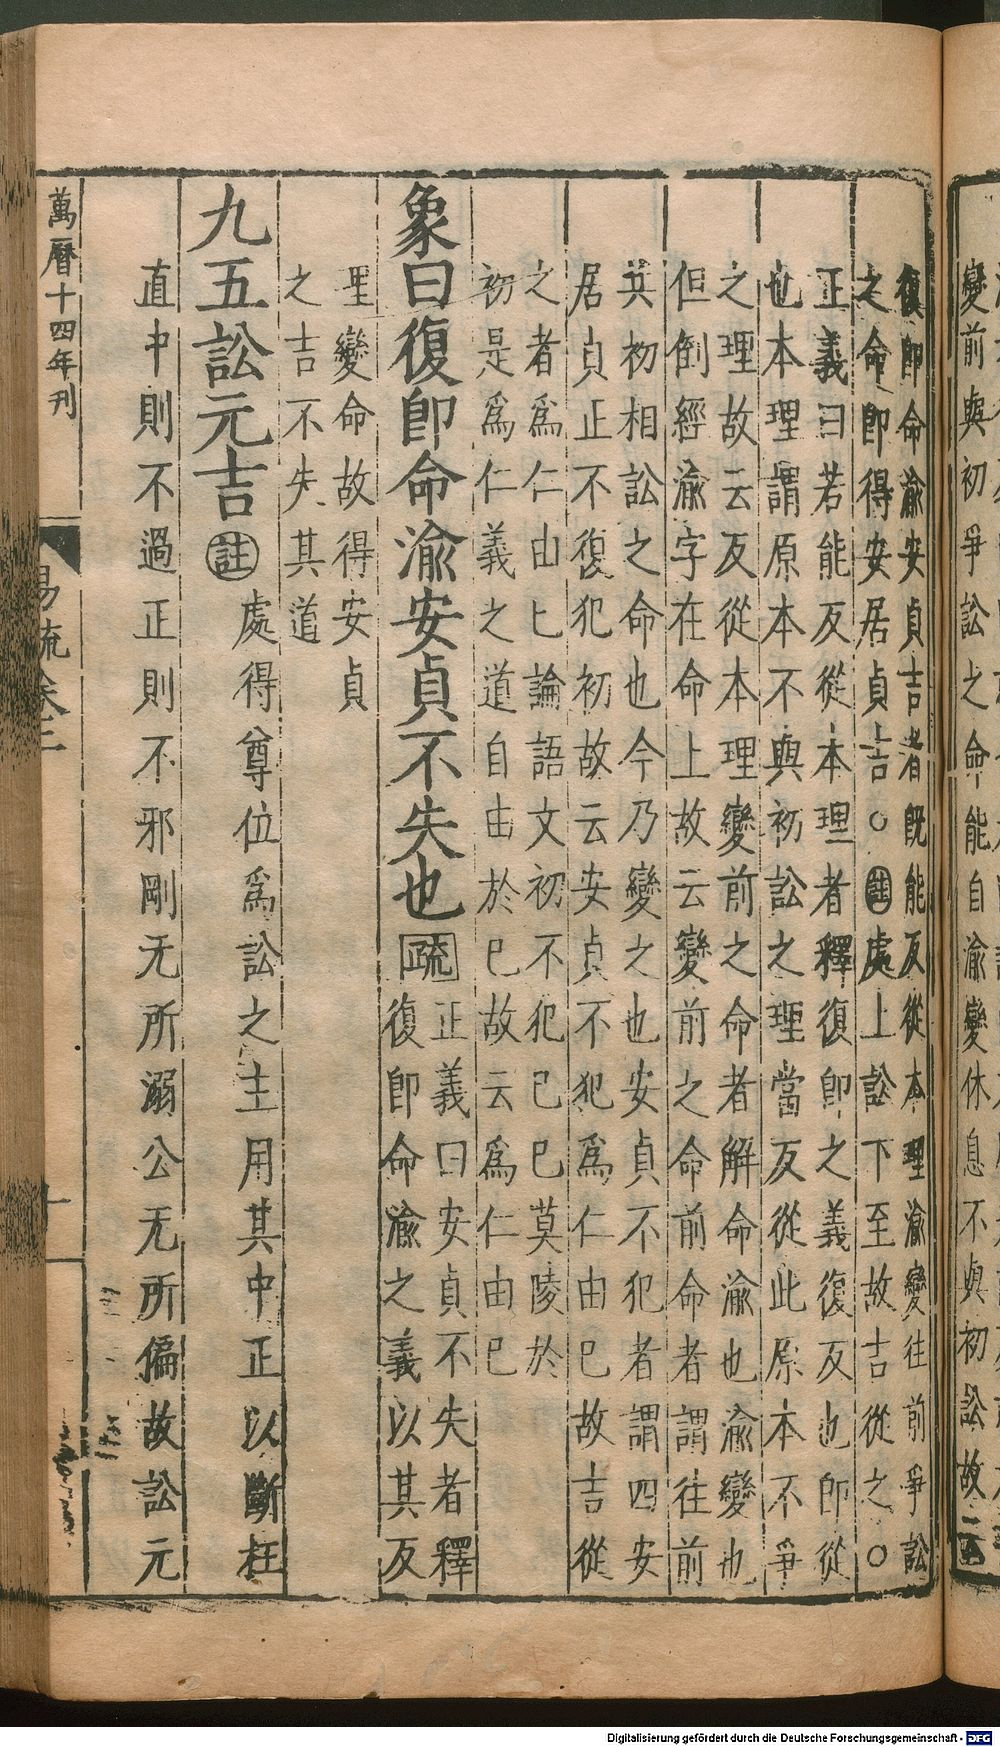 變前與初爭訟之命能自渝變休息不與初訟故云
復即命渝安貞吉者既能反從本理渝變往前爭訟
之命即得安居貞吉○註處上訟下至故吉從之○
正義曰若能反從本理者釋復即之義復反也即從
也本理謂原本不與初訟之理當反從此原本不爭
之理故云反從本理變前之命者解命渝也渝變也
但倒經渝字在命上故云變前之命前命者謂往前
共初相訟之命也今乃變之也安貞不犯者謂四安
居貞正不復犯初故云安貞不犯爲仁由巳故吉從
之者爲仁由匕論語文初不犯巳巳莫陵於
初是爲仁義之道自由於巳故云爲仁由巳
象曰復即命渝安貞不失也疏正義曰安貞不失者釋
復即命渝之義以其反
理變命故得安貞
之吉不失其道
九五訟元吉註處得尊位爲訟之主用其中正以斷枉
直中則不過正則不邪剛无所溺公无所偏故訟元
萬曆十四年刊
易疏卷二
Digitalisierung gefördert durch die Deutsche Forschungsgemeinschaft - DFG